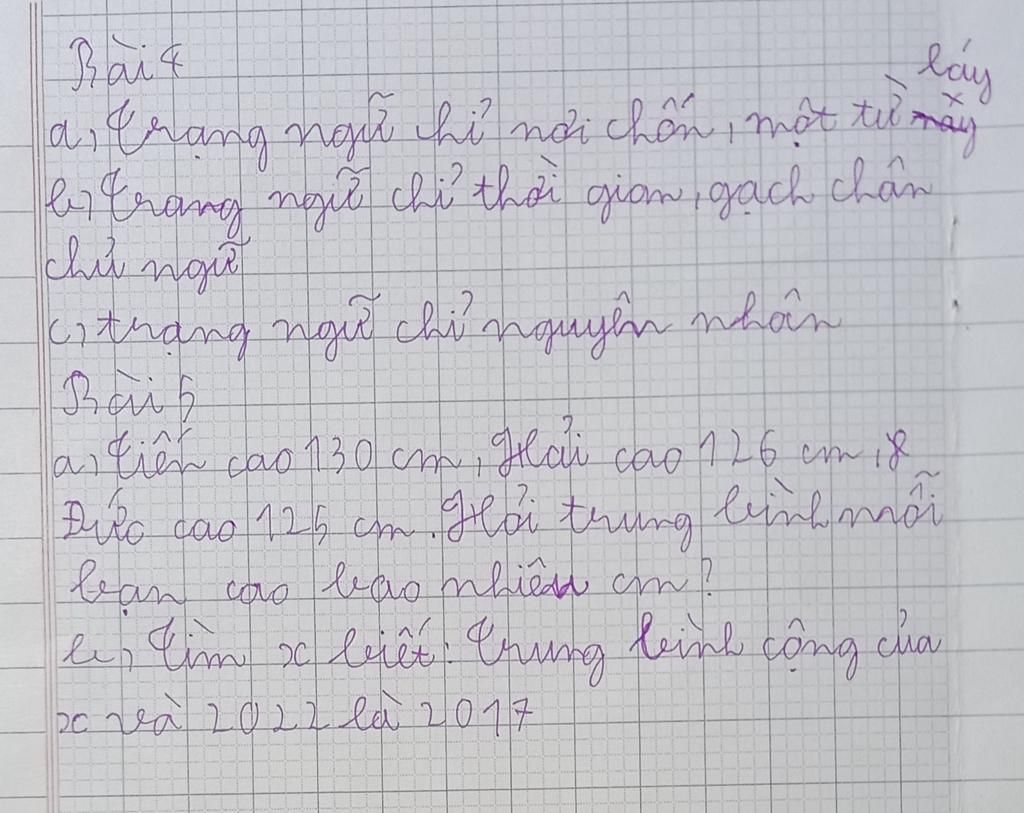 Bài 4
láy
a, Trạng ngữ chỉ nơi chốn, một từ máy
b, Trạng ngữ chỉ thời gian, gạch chân
chủ ngữ
c, trạng ngữ chỉ nguyên nhân
Bài 5
a, Tiến cao 130 cm, Hải cao 126 cm,
Đức cao 125 cm. Hỏi trung bình mỗi
bạn cao bao nhiêu cm?
b, Tìm x biết: Trung bình cộng của
x và 2022 là 2017